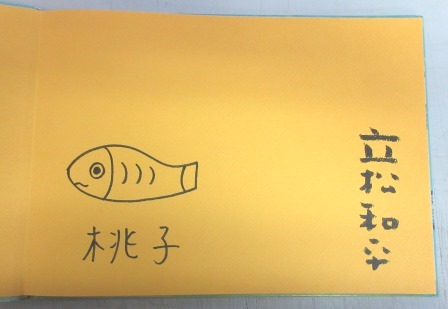 立松和平
桃子